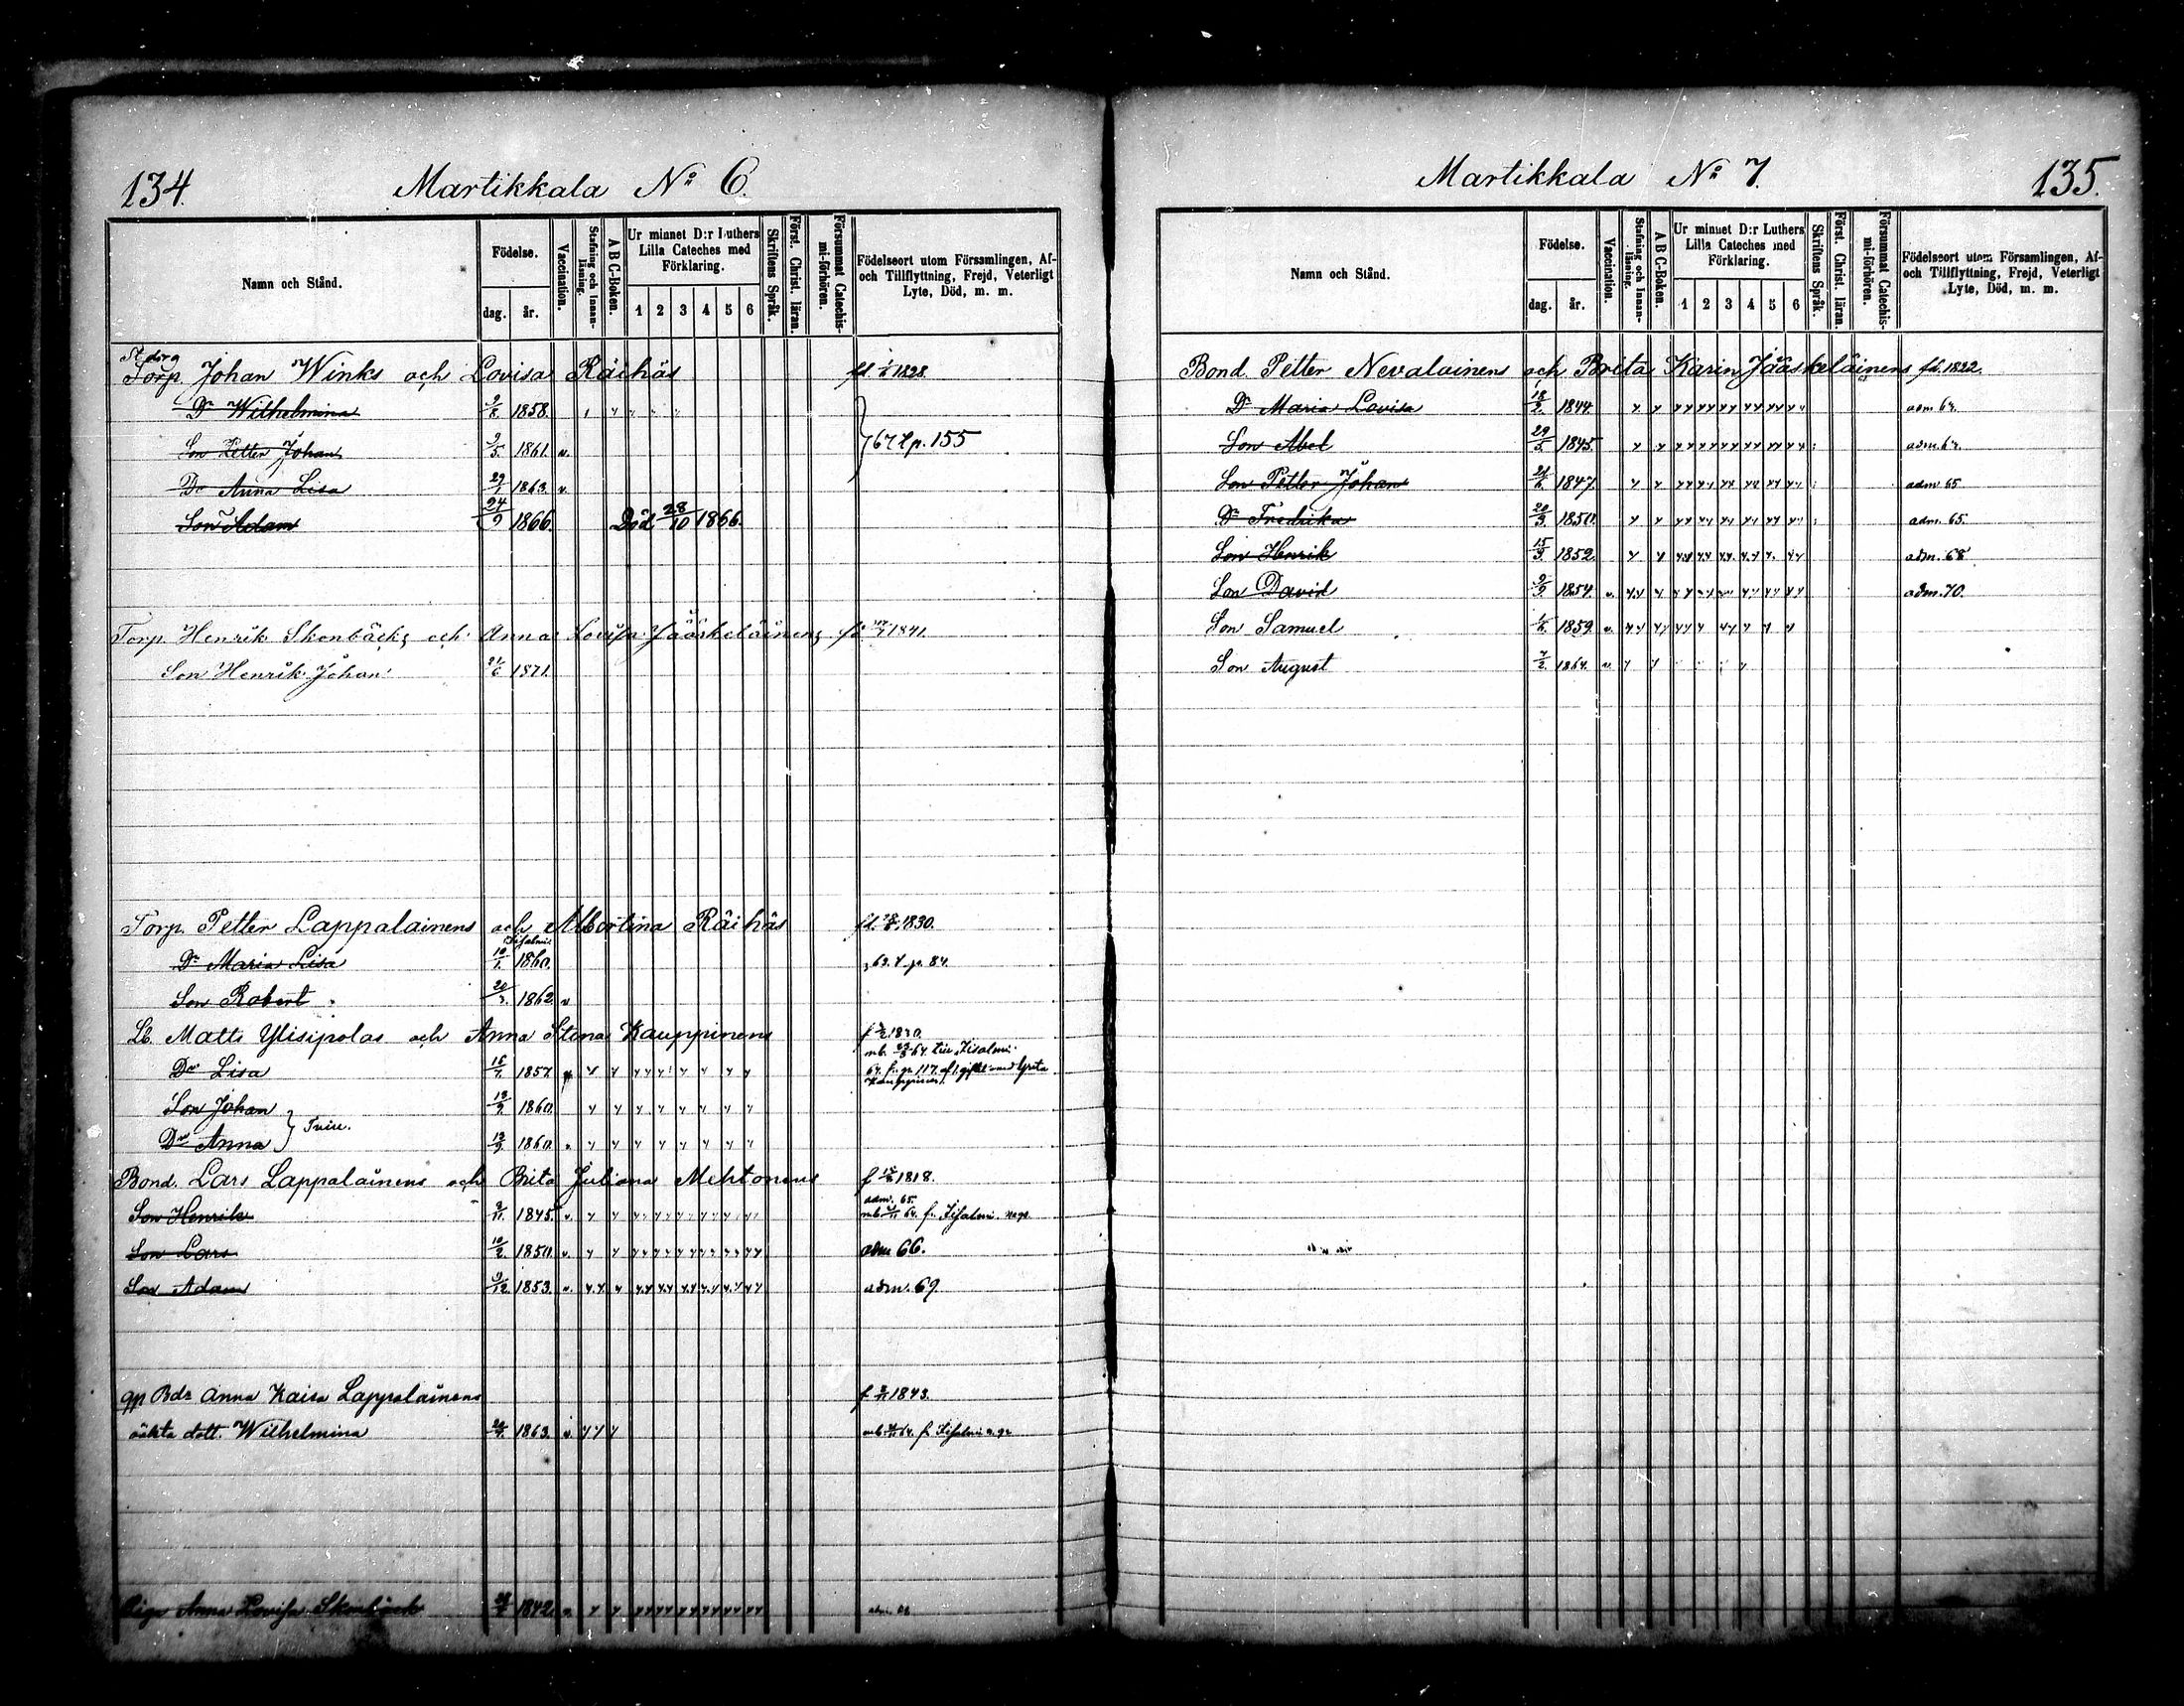 134.
Martikkala No 6.
Namn och Stånd.
Födelse.
dag.
år.
Vaccination.
Stafning och Innan-läsning.
A B C-Boken.
Ur minnet D:r Luthers Lilla Cateches med Förklaring.
1 2 3 4 5 6
Skriftens Språk.
Först. Christ. läran.
Försummat Catechis-mi-förhören.
Födelseort utom Församlingen, Af- och Tillflyttning, Frejd, Veterligt Lyte, Död, m. m.
Torp. Johan Winks och Lovisa Räihäs 1828.
Dr Wilhelmina 9/8 1858.
Son Petter Johan 9/5. 1861. v. 67 t p. 155
Dr Anna Lisa 29/1 1863. v.
Son Adam 24/9 1866. Död 28/10 1866.
Torp. Henrik Skenbäcks och Anna Lovisa Jääskeläinens 1841.
Son Henrik Johan 1871.
Torp. Petter Lappalainens och Albertina Räihäs 1830.
Dr Maria Lisa 1860. 63. p. 84.
Son Robert 20/3. 1862. v
Matts Ylisipolas och Anna Stina Kauppinens 1830.
Dr Lisa 1857
Son Johan 1860.
Tvill.
Dr Anna 13/9 1860.
Bond. Lars Lappalainens och Brita Juliana Mehtonens 1818.
adm. 65.
Son Henrik 9/11. 1845. v. 64. fr. Iisalmi
Son Lars 10/2. 1850. v. adm 66.
Son Adam 9/12. 1853. v. adm. 69.
Bdr Anna Kaisa Lappalainens 1843.
oäkta dott. Wilhelmina 1863. v. 64. f. Iisalmi
Piga Anna Lovisa Skenbäck 1842.
Martikkala No 7.
135.
Namn och Stånd.
Födelse.
dag.
år.
Vaccination.
Stafning och Innan-läsning.
A B C-Boken.
Ur minnet D:r Luthers Lilla Cateches med Förklaring.
1 2 3 4 5 6
Skriftens Språk.
Först. Christ. läran.
Försummat Catechis-mi-förhören.
Födelseort utom Församlingen, Af- och Tillflyttning, Frejd, Veterligt Lyte, Död, m. m.
Bond. Petter Nevalainens och Brita Karin Jääskeläinens fd. 1822.
Dr Maria Lovisa 18/2. 1844.
Son Abel 29/5. 1845.
Son Petter Johan 1847. adm 65
Dr Fredrika 20/3. 1850. adm. 65.
Son Henrik 15/3. 1852. adm. 68
Son David 1854. v. adm. 70.
Son Samuel 1859. v.
Son August 7/2. 1864. v.